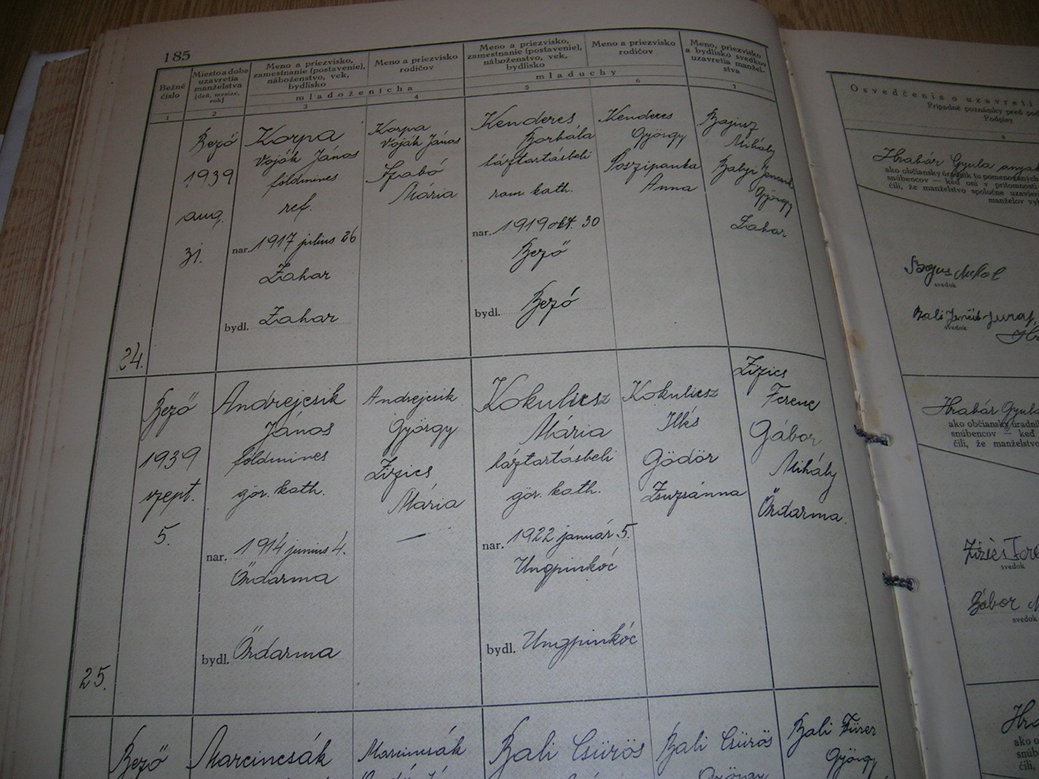 185
Bežné číslo
Miesto a doba uzavretia manželstva (deň, mesiac, rok)
Meno a priezvisko, zamestnanie (postavenie), náboženstvo, vek, bydlisko
Meno a priezvisko rodičov
mladoženícha
Meno a priezvisko, zamestnanie (postavenie), náboženstvo, vek, bydlisko
Meno a priezvisko rodičov
mladuchy
Meno, priezvisko a bydlisko svedkov uzavretia manželstva
1 2 3 4 5 6 7
24.
Bező
1939
aug.
31.
Korpa
Voják János
földmives
ref.
nar. 1917 julius 26
Záhar
bydl. Záhar
Korpa
Voják János
Szabó
Mária
Kenderes
Borbála
háztartásbeli
rom. kath.
nar. 1919 okt. 30
Bező
bydl. Bező
Kenderes
György
Poszipanka
Anna
Bajusz
Mihály
György
Záhar
25.
Bező
1939
szept.
5.
Andrejcsik
János
földmives
gör. kath.
nar. 1914 junius 4.
Őrdarma
bydl. Őrdarma
Andrejcsik
György
Zizics
Mária
—
Kokulicsz
Mária
háztartásbeli
gör. kath.
nar. 1922 január 5.
Ungpinkóc
bydl. Ungpinkóc
Kokulicsz
Illés
Gödör
Zsuzsánna
Zizics
Ferenc
Gábor
Mihály
Őrdarma.
Bező
Marcincsak
Marcincsák
Bali Csürös
Bali Csürös
György
Bali Fürer
György
Osvedčenia o uzavretí
Prípadné poznámky pred
Podpisy
8
Hrabár Gyula anyak
ako občiansky úradník
svedok
svedok
Hrabár Gyula
ako občiansky úradník
snúbencov — keď
čili, že manželstvo
svedok
Gábor M
svedok
Hra